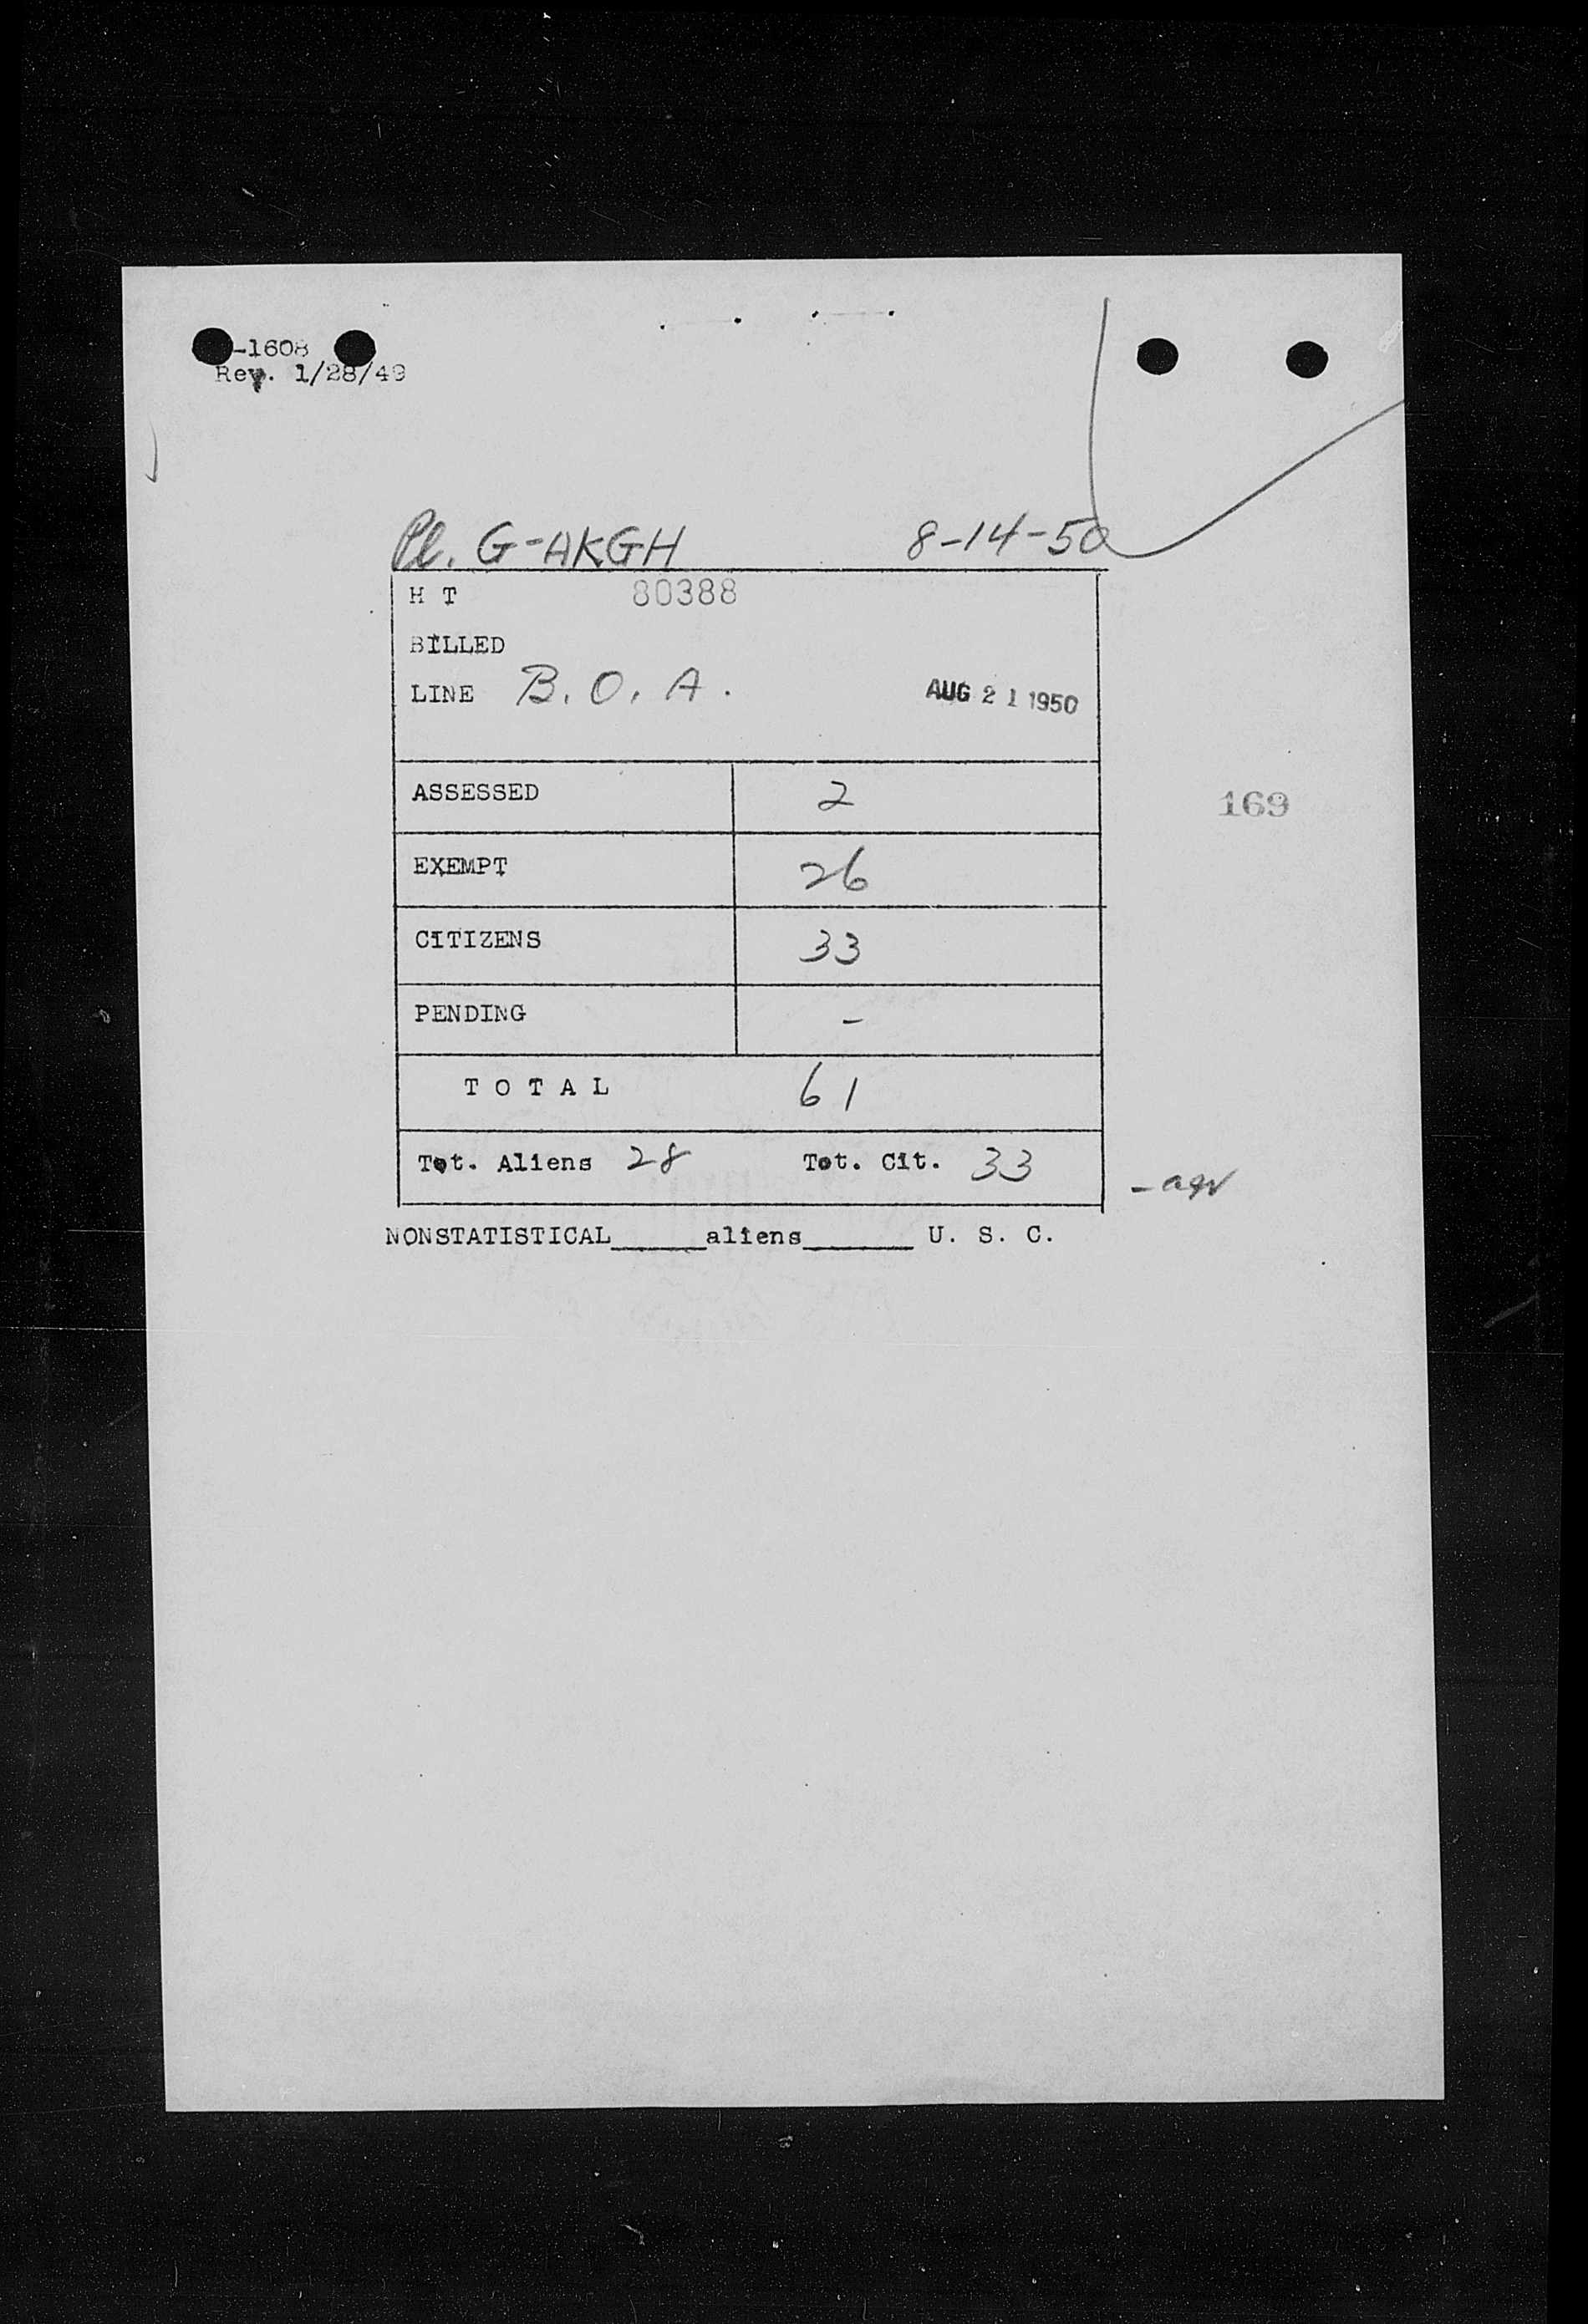 -1608
Rev. 1/28/49
Pl. G-AKGH 8-14-50
H T 80388
BILLED
LINE B. O. A. AUG 21 1950
ASSESSED 2
169
EXEMPT 26
CITIZENS 33
PENDING -
TOTAL 61
Tot. Aliens 28 Tot. Cit. 33
NONSTATISTICAL_____aliens______ U. S. C.